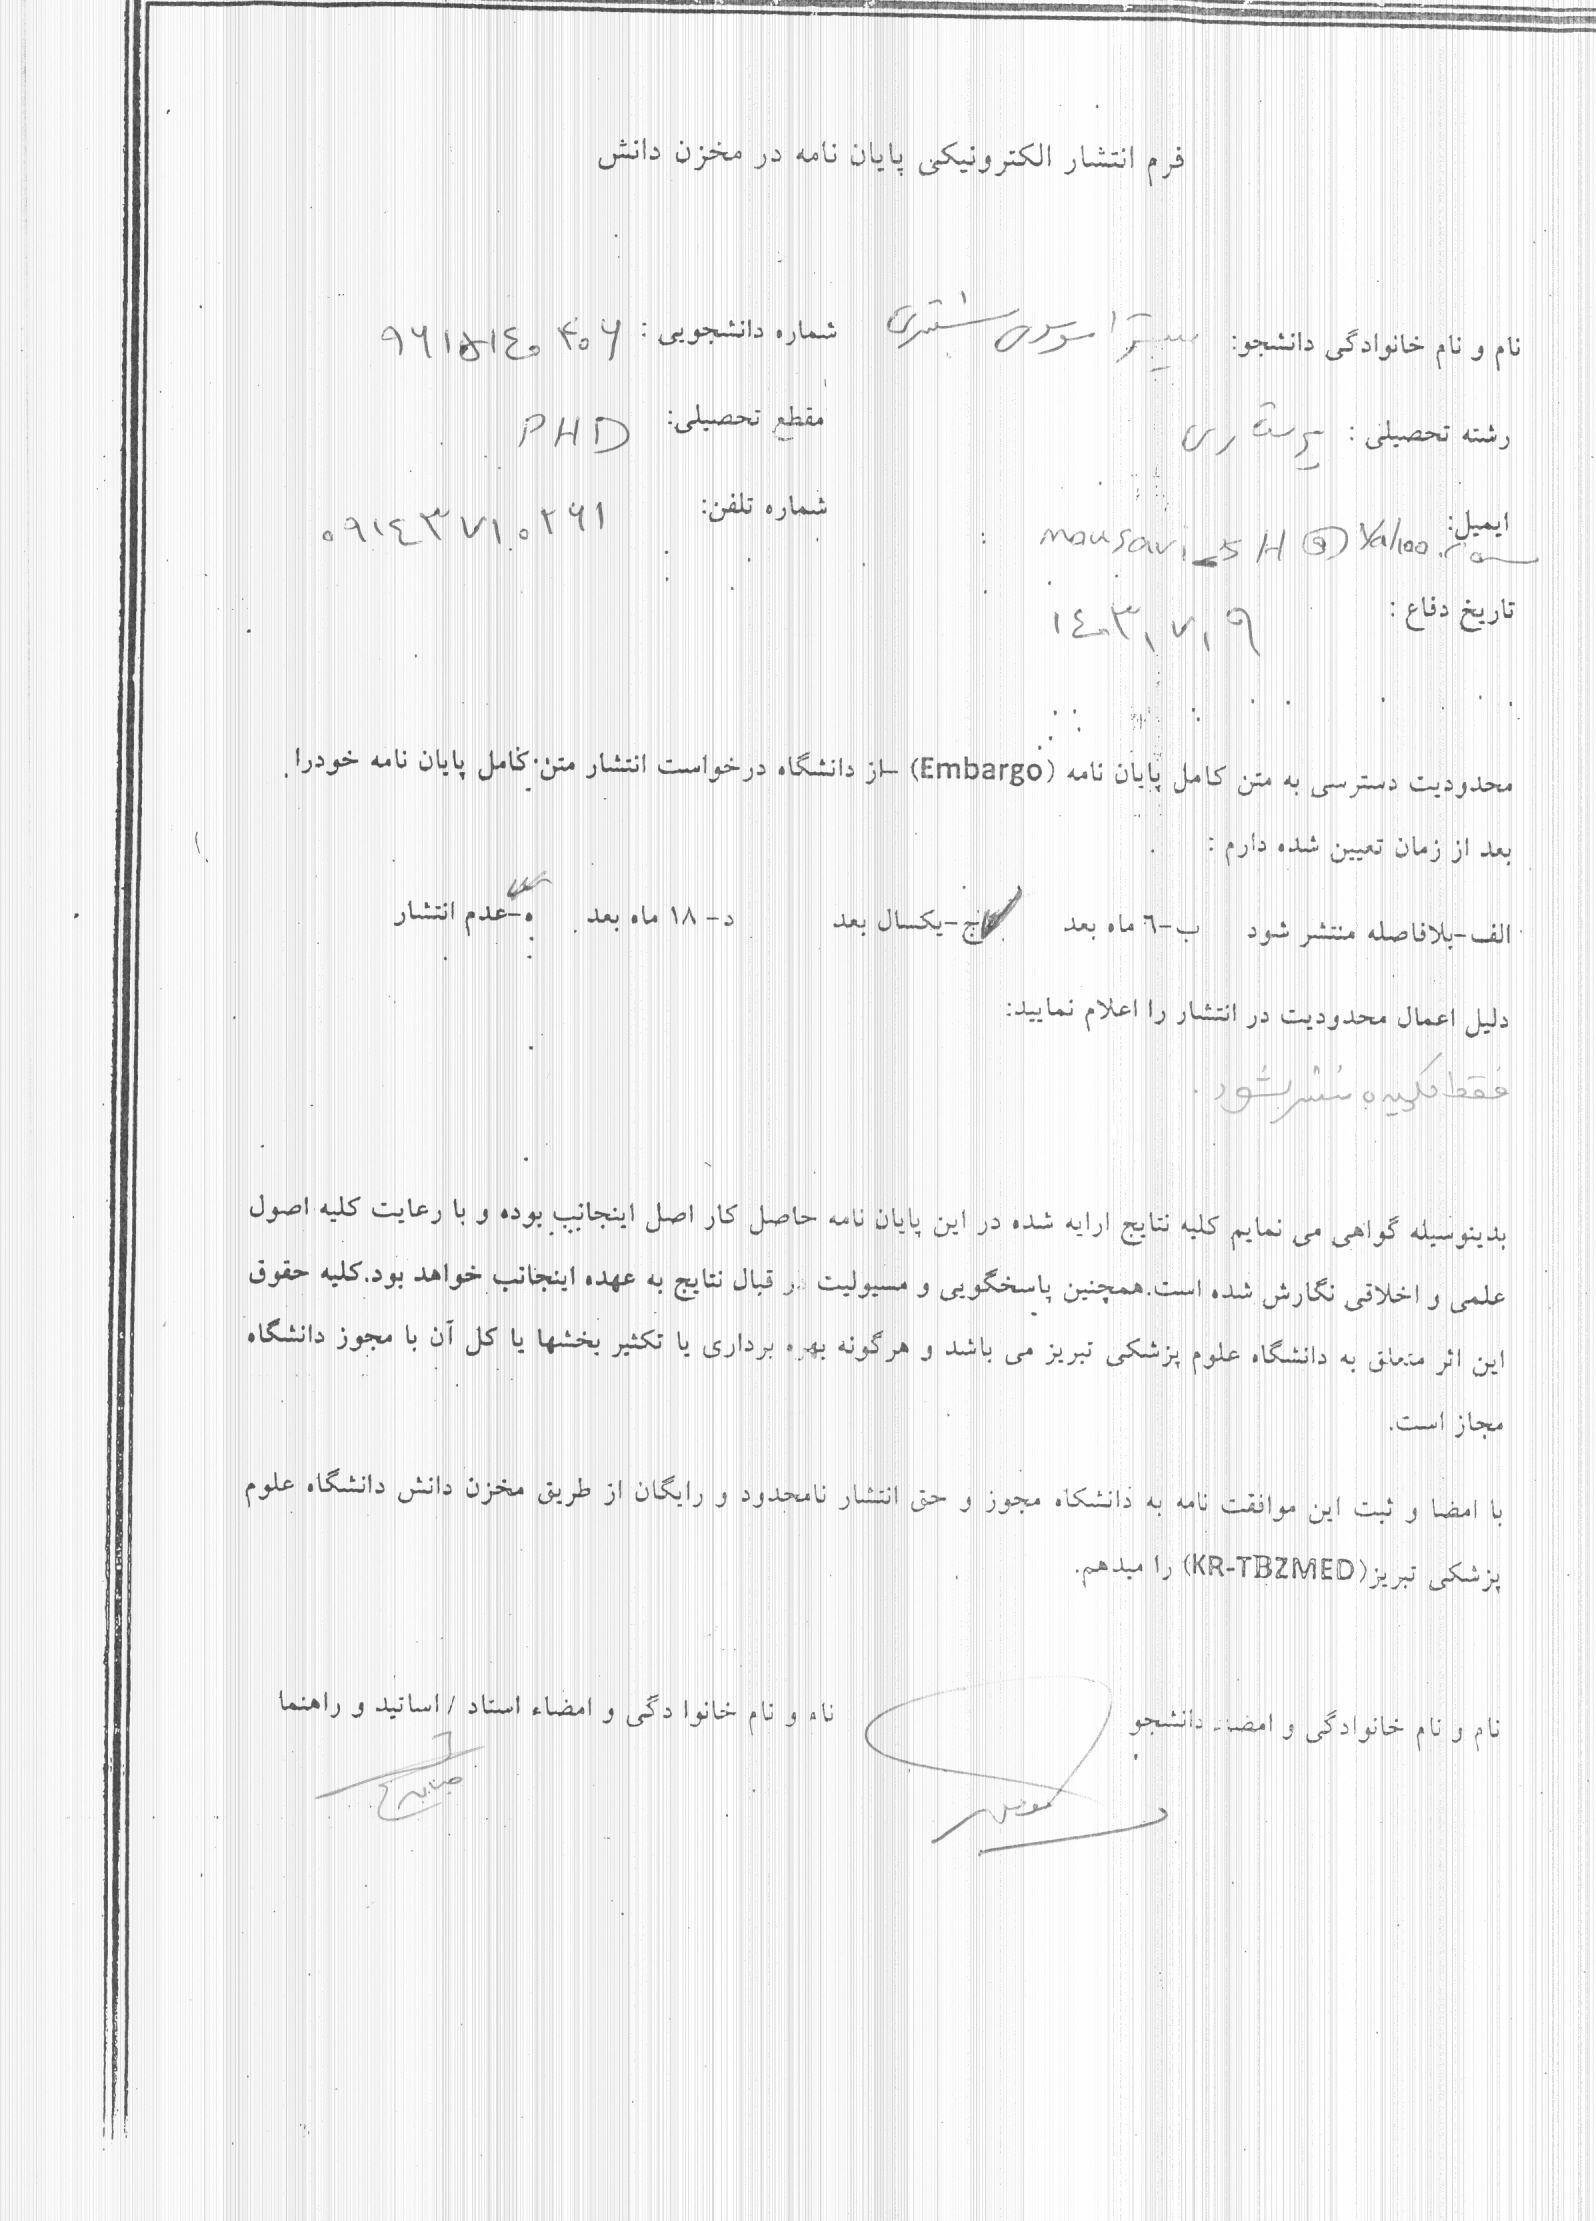 فرم انتشار الکترونیکی پایان نامه در مخزن دانش
نام و نام خانوادگی دانشجو: میترا موسوی شبستری شماره دانشجویی :
رشته تحصیلی : پرستاری مقطع تحصیلی: PHD
ایمیل: mousavi_5H@yahoo.com شماره تلفن: ۰۹۱۴۳۷۱۰۲۶۱
تاریخ دفاع : ۱۴۰۳/۷/۹
محدودیت دسترسی به متن کامل پایان نامه (Embargo) –از دانشگاه درخواست انتشار متن کامل پایان نامه خودرا
بعد از زمان تعیین شده دارم :
الف-بلافاصله منتشر شود ب-٦ ماه بعد ج-یکسال بعد د- ۱۸ ماه بعد ه-عدم انتشار
دلیل اعمال محدودیت در انتشار را اعلام نمایید:
فقط چکیده منتشر شود.
بدینوسیله گواهی می نمایم کلیه نتایج ارایه شده در این پایان نامه حاصل کار اصل اینجانب بوده و با رعایت کلیه اصول
علمی و اخلاقی نگارش شده است.همچنین پاسخگویی و مسیولیت در قبال نتایج به عهده اینجانب خواهد بود.کلیه حقوق
این اثر متعلق به دانشگاه علوم پزشکی تبریز می باشد و هرگونه بهره برداری یا تکثیر بخشها یا کل آن با مجوز دانشگاه
مجاز است.
با امضا و ثبت این موافقت نامه به دانشگاه مجوز و حق انتشار نامحدود و رایگان از طریق مخزن دانش دانشگاه علوم
پزشکی تبریز(KR-TBZMED) را میدهم.
نام و نام خانوادگی و امضاء دانشجو نام و نام خانوا دگی و امضاء استاد / اساتید و راهنما